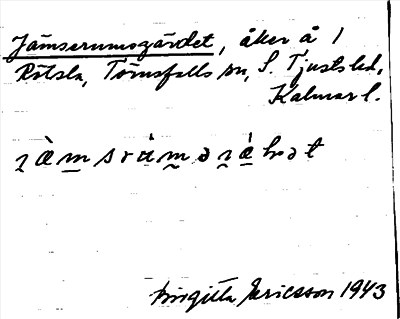 Jämserumsgärdet, åker å 1
Rötsla, Törnsfalls sn, S. Tjusts hd,
Kalmar l.
Birgitta Ericsson 1943